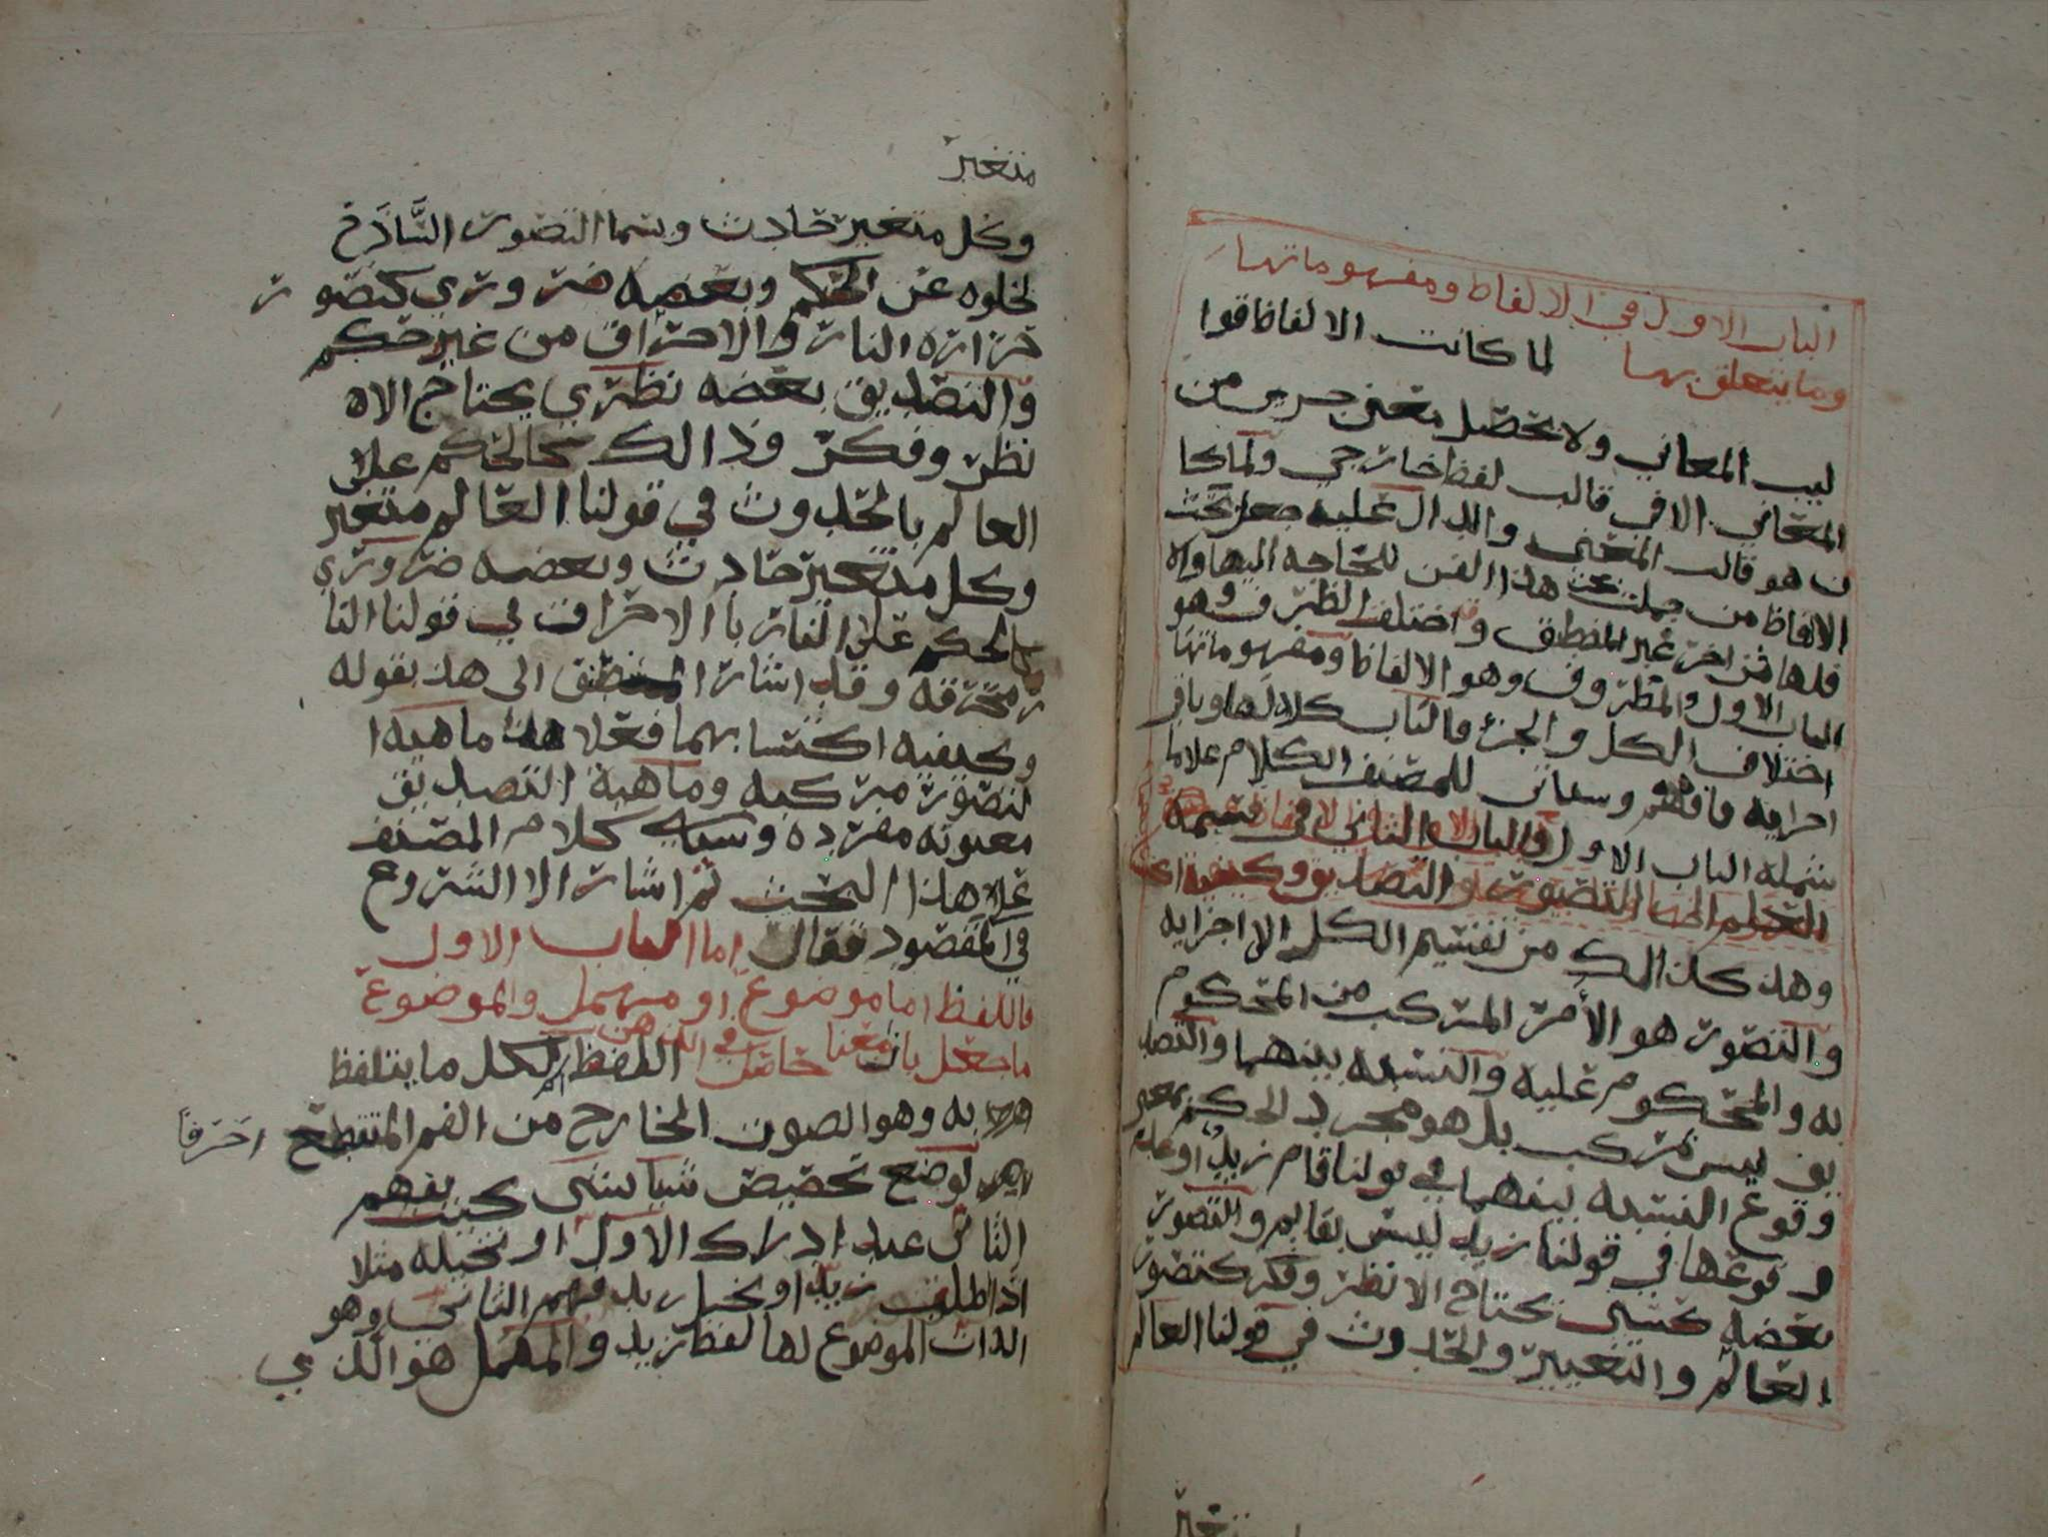 الباب الاول في الالفاظ ومفهوماتها
وما يتعلق بها لما كانت الالفاظ قوا
ليب المعاني ولا تحصل معنى من
المعاني الا في قالب لفظ خارجي ولما كا
ن هو قالب المعنى والدال عليه جعل بحث
الالفاظ من جملت هذا الفن للحاجه اليها والا
فلها فن اخر غير المنطق واختلف الظرف وهو
الباب الاول والمظروف وهو الالفاظ ومفهوماتها
اختلاف الكل والجزء فالباب كلا لها وباقي
اجزايه فافهم للمصنف الكلام علا ما
شمله الباب الاول والباب الثاني في قسمة
العلم الى التصور والتصديق وكيفية
وهذ كذالك من تقسيم الكل الى اجزايه
والتصور هو الأمر المتركب من المحكوم
به والمحكوم عليه والنسبه بينهما والتصد
يق ليس مركب بل هو مجرد الحكم بمعنى
وقوع النسبه بينهما في قولنا قام زيد او عدم
وقوعها في قولنا زيد ليس بقايم والتصور
بعضه كسبي يحتاج الا نظر وفكر كتصور
العالم والتغيير والحدوث في قولنا العالم
متغير
متغير
وكل متغير حادث ويسما التصور السَّاذَج
لخلوه عن الحكم وبعضه ضروري كتصور
حرارة النار والاحتراق من غير حكم
والتصديق بعضه نظري يحتاج الا
نظر وفكر وذالك كالحكم علا
العالم بالحدوث في قولنا العالم متغير
وكل متغير حادث وبعضه ضروري
كالحكم على النار باالاحراق في قولنا النا
ر محرقه وقد اشار الى هذ بقوله
وكيفيه اكتسابهما فعلا هذا ماهية ا
لتصور مركبه وماهية التصديق
مفرده كلام المصنف
علا هذا البحث ثم اشار الا الشروع
في المقصود فقال اما الباب الاول
فاللفظ اما موضوع او مهمل والموضوع
ما جعل باز معنا خاص في الذهن اللفظ لكل ما يتلفظ
به وهو الصوت الخارج من الفم المتقطع احرفا
لوضع تخصيص شيا بشي بحيث يفهم
الثاني عند ادراك الاول او تخيله مثلا
اذا اطلق زيد او تخيل زيد فهم الثاني وهو
الذات الموضوع لها لفظ زيد والمهمل هو الذي